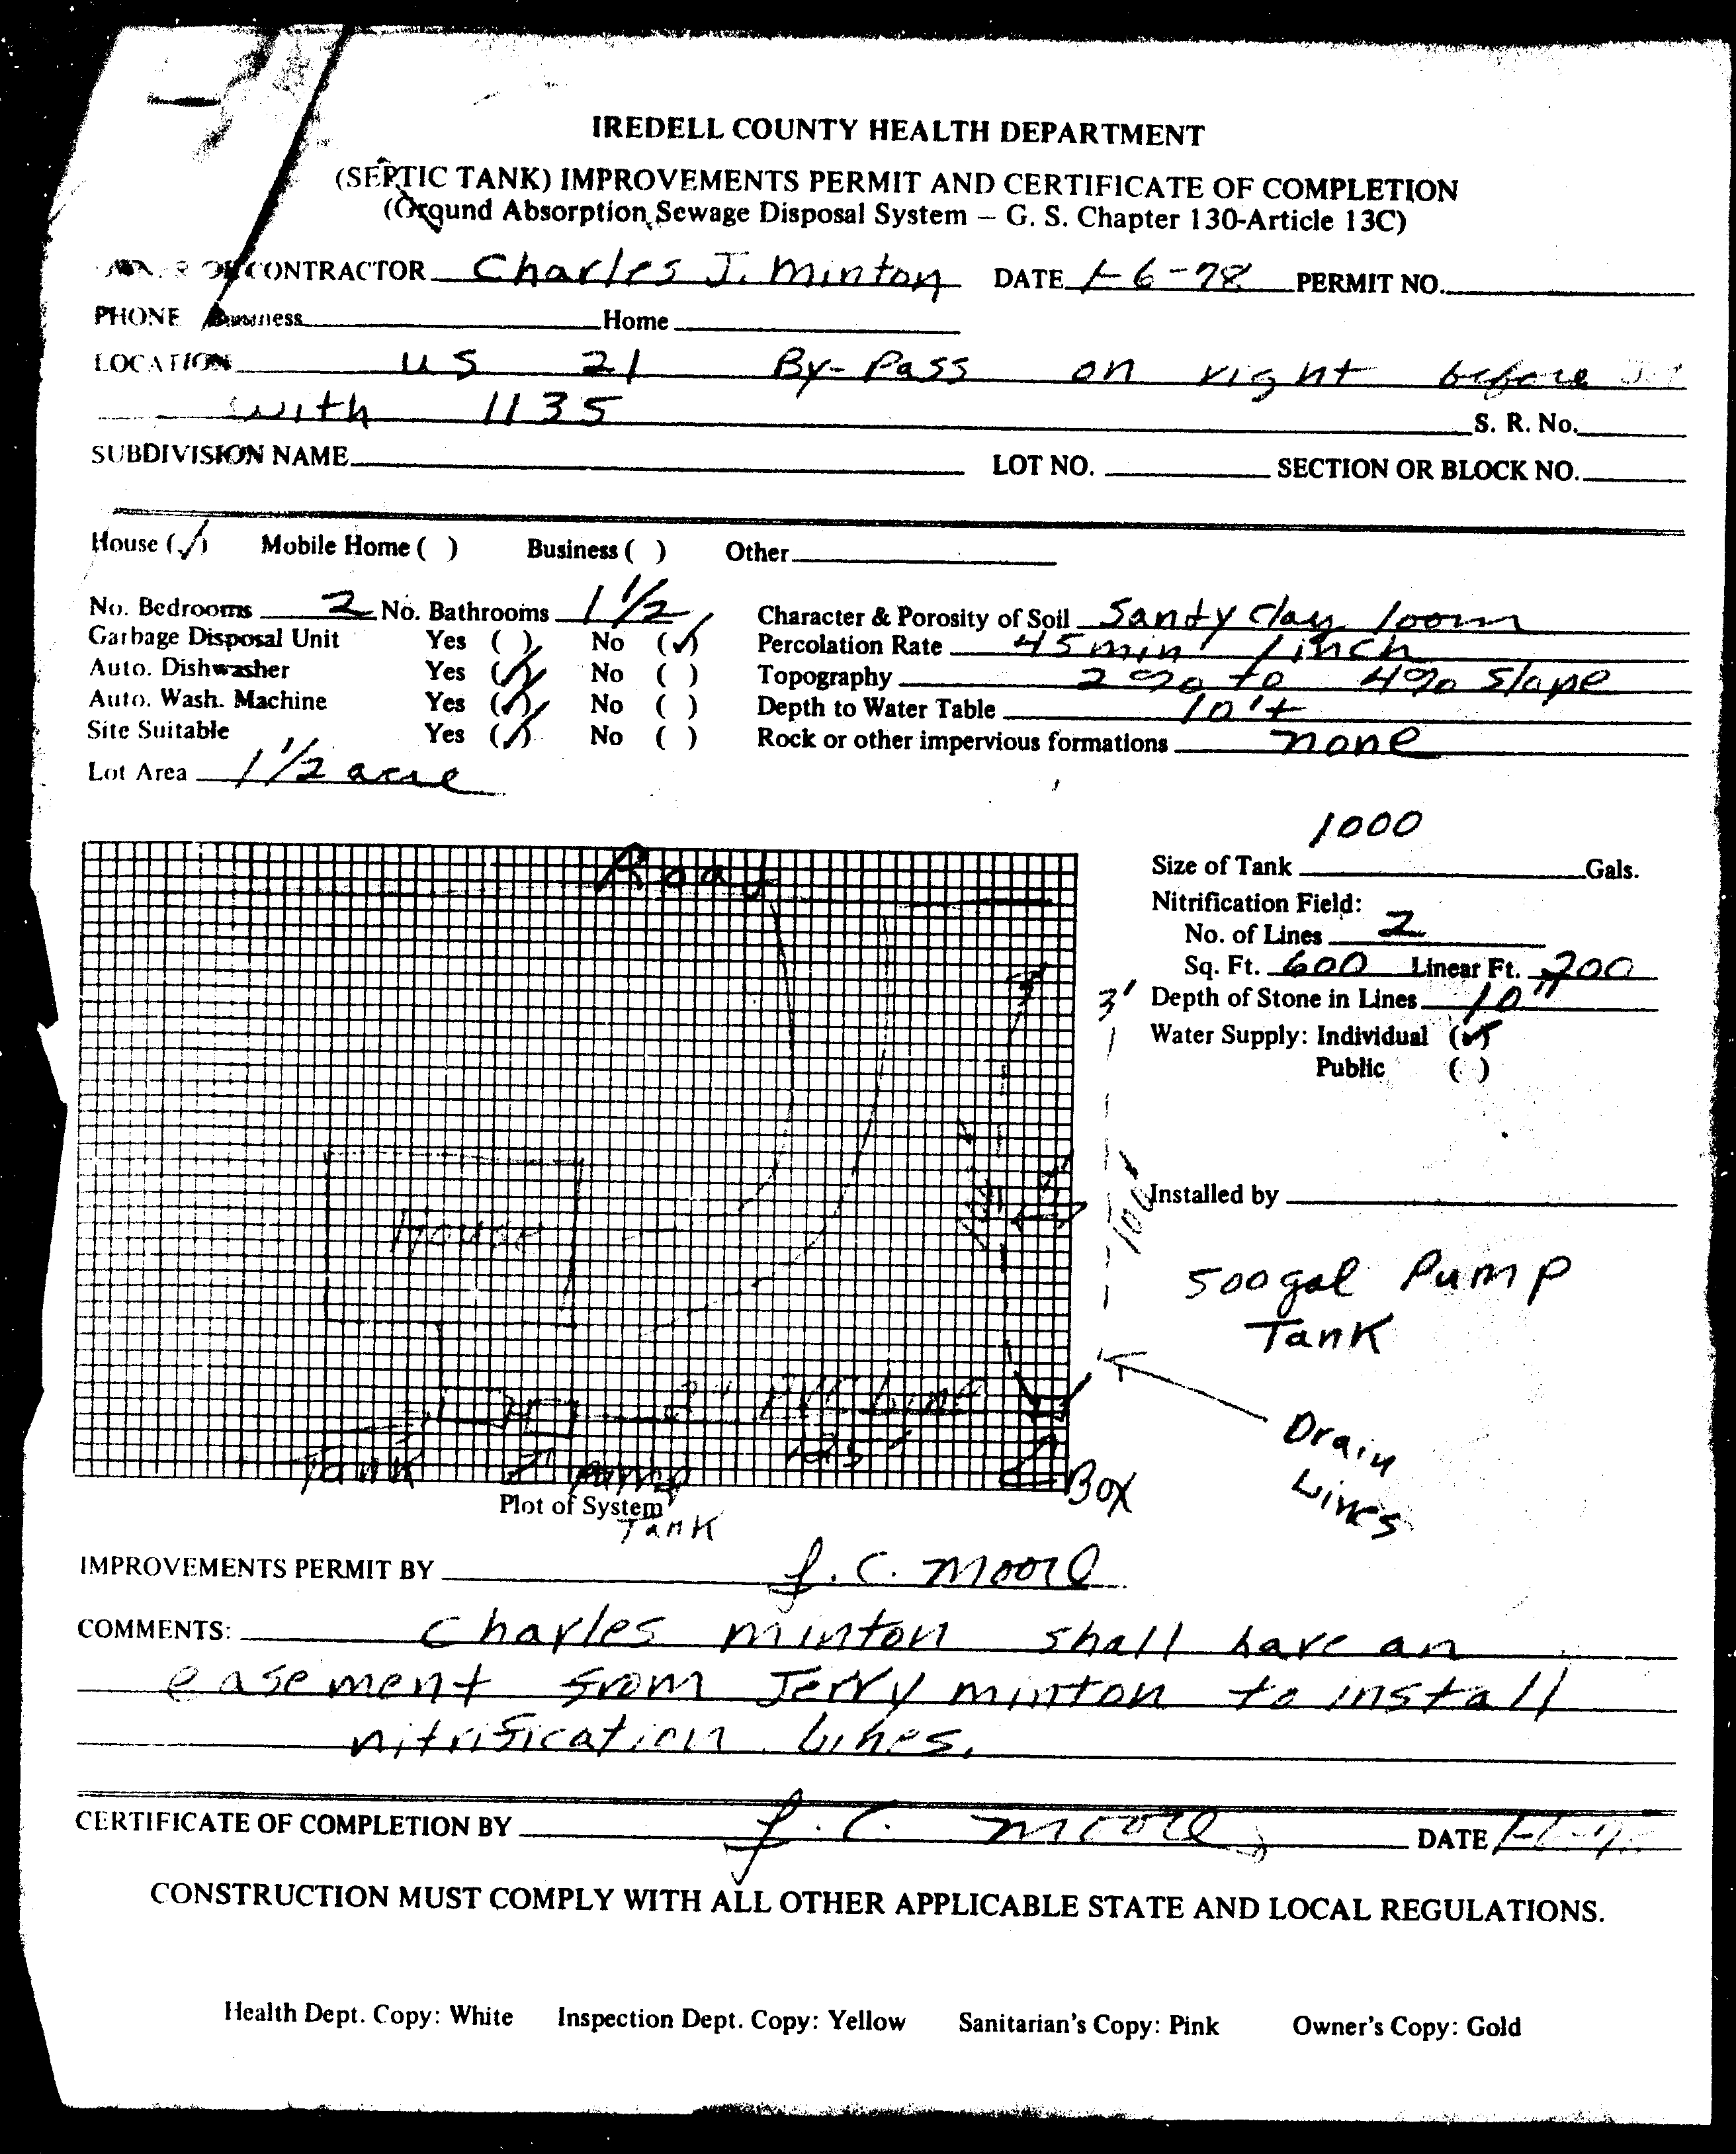 IREDELL COUNTY HEALTH DEPARTMENT
(SEPTIC TANK) IMPROVEMENTS PERMIT AND CERTIFICATE OF COMPLETION
(Ground Absorption Sewage Disposal System – G. S. Chapter 130-Article 13C)
CONTRACTOR Charles J. Minton DATE 1-6-78 PERMIT NO.
PHONE Business Home
LOCATION US 21 By-Pass on right before
with 1135 S. R. No.
SUBDIVISION NAME LOT NO. SECTION OR BLOCK NO.
House (✓) Mobile Home ( ) Business ( ) Other
No. Bedrooms 2 No. Bathrooms 1 1/2 Character & Porosity of Soil Sandy clay loom
Garbage Disposal Unit Yes ( ) No (✓) Percolation Rate 45 min / inch
Auto. Dishwasher Yes (✓) No ( ) Topography 2% to 4% Slope
Auto. Wash. Machine Yes (✓) No ( ) Depth to Water Table 10'+
Site Suitable Yes (✓) No ( ) Rock or other impervious formations none
Lot Area 1 1/2 acre
1000
Size of Tank Gals.
Nitrification Field:
No. of Lines 2
Sq. Ft. 600 Linear Ft. 200
Depth of Stone in Lines 10"
Water Supply: Individual (✓)
Public ( )
Installed by
500 gal Pump
Tank
Drain
Lines
Road
3'
3'
100'
House
2" PVC Line
Tank Pump
Box
Plot of System
Tank
IMPROVEMENTS PERMIT BY J. C. Moore
COMMENTS: Charles Minton shall have an
easement from Jerry Minton to install
nitrification lines.
CERTIFICATE OF COMPLETION BY J. C. Moore DATE
CONSTRUCTION MUST COMPLY WITH ALL OTHER APPLICABLE STATE AND LOCAL REGULATIONS.
Health Dept. Copy: White Inspection Dept. Copy: Yellow Sanitarian's Copy: Pink Owner's Copy: Gold